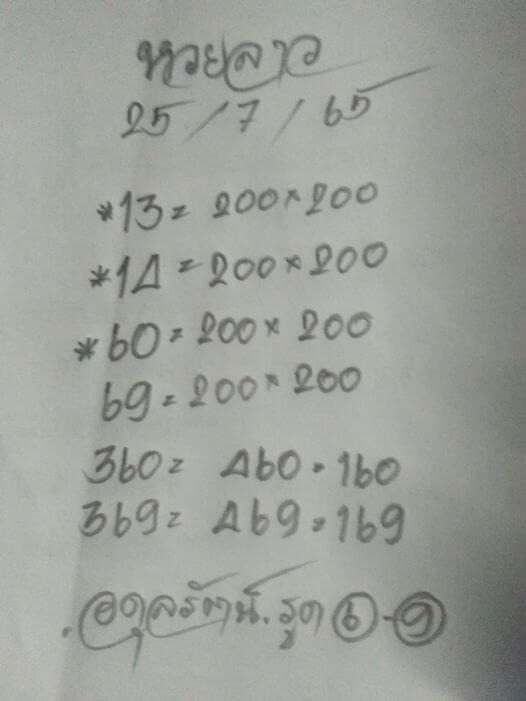 หวยลาว
25/7/65
*13=200×200
*14=200×200
*60=200×200
69=200×200
360= 460.160
369= 469=169
.อดุลรัตน์.รูด 6-9